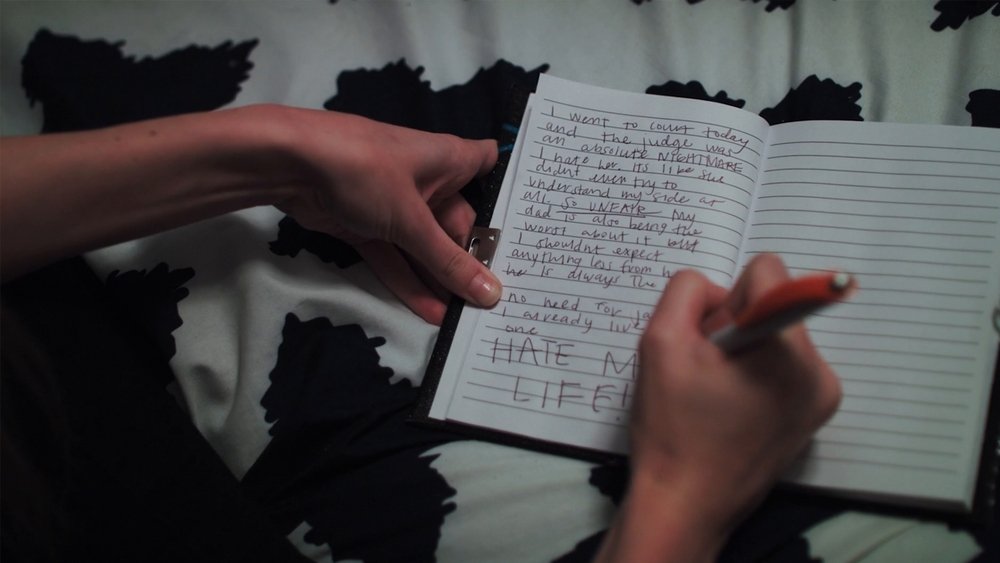 I went to court today
and the judge was
an absolute NIGHTMARE
I hate her. its like she
didnt even try to
understand my side at
all. SO UNFAIR My
dad is also being the
worst about it but
I shouldnt expect
anything less from
he is always the
no need for
I already live
one
HATE
LIFE!